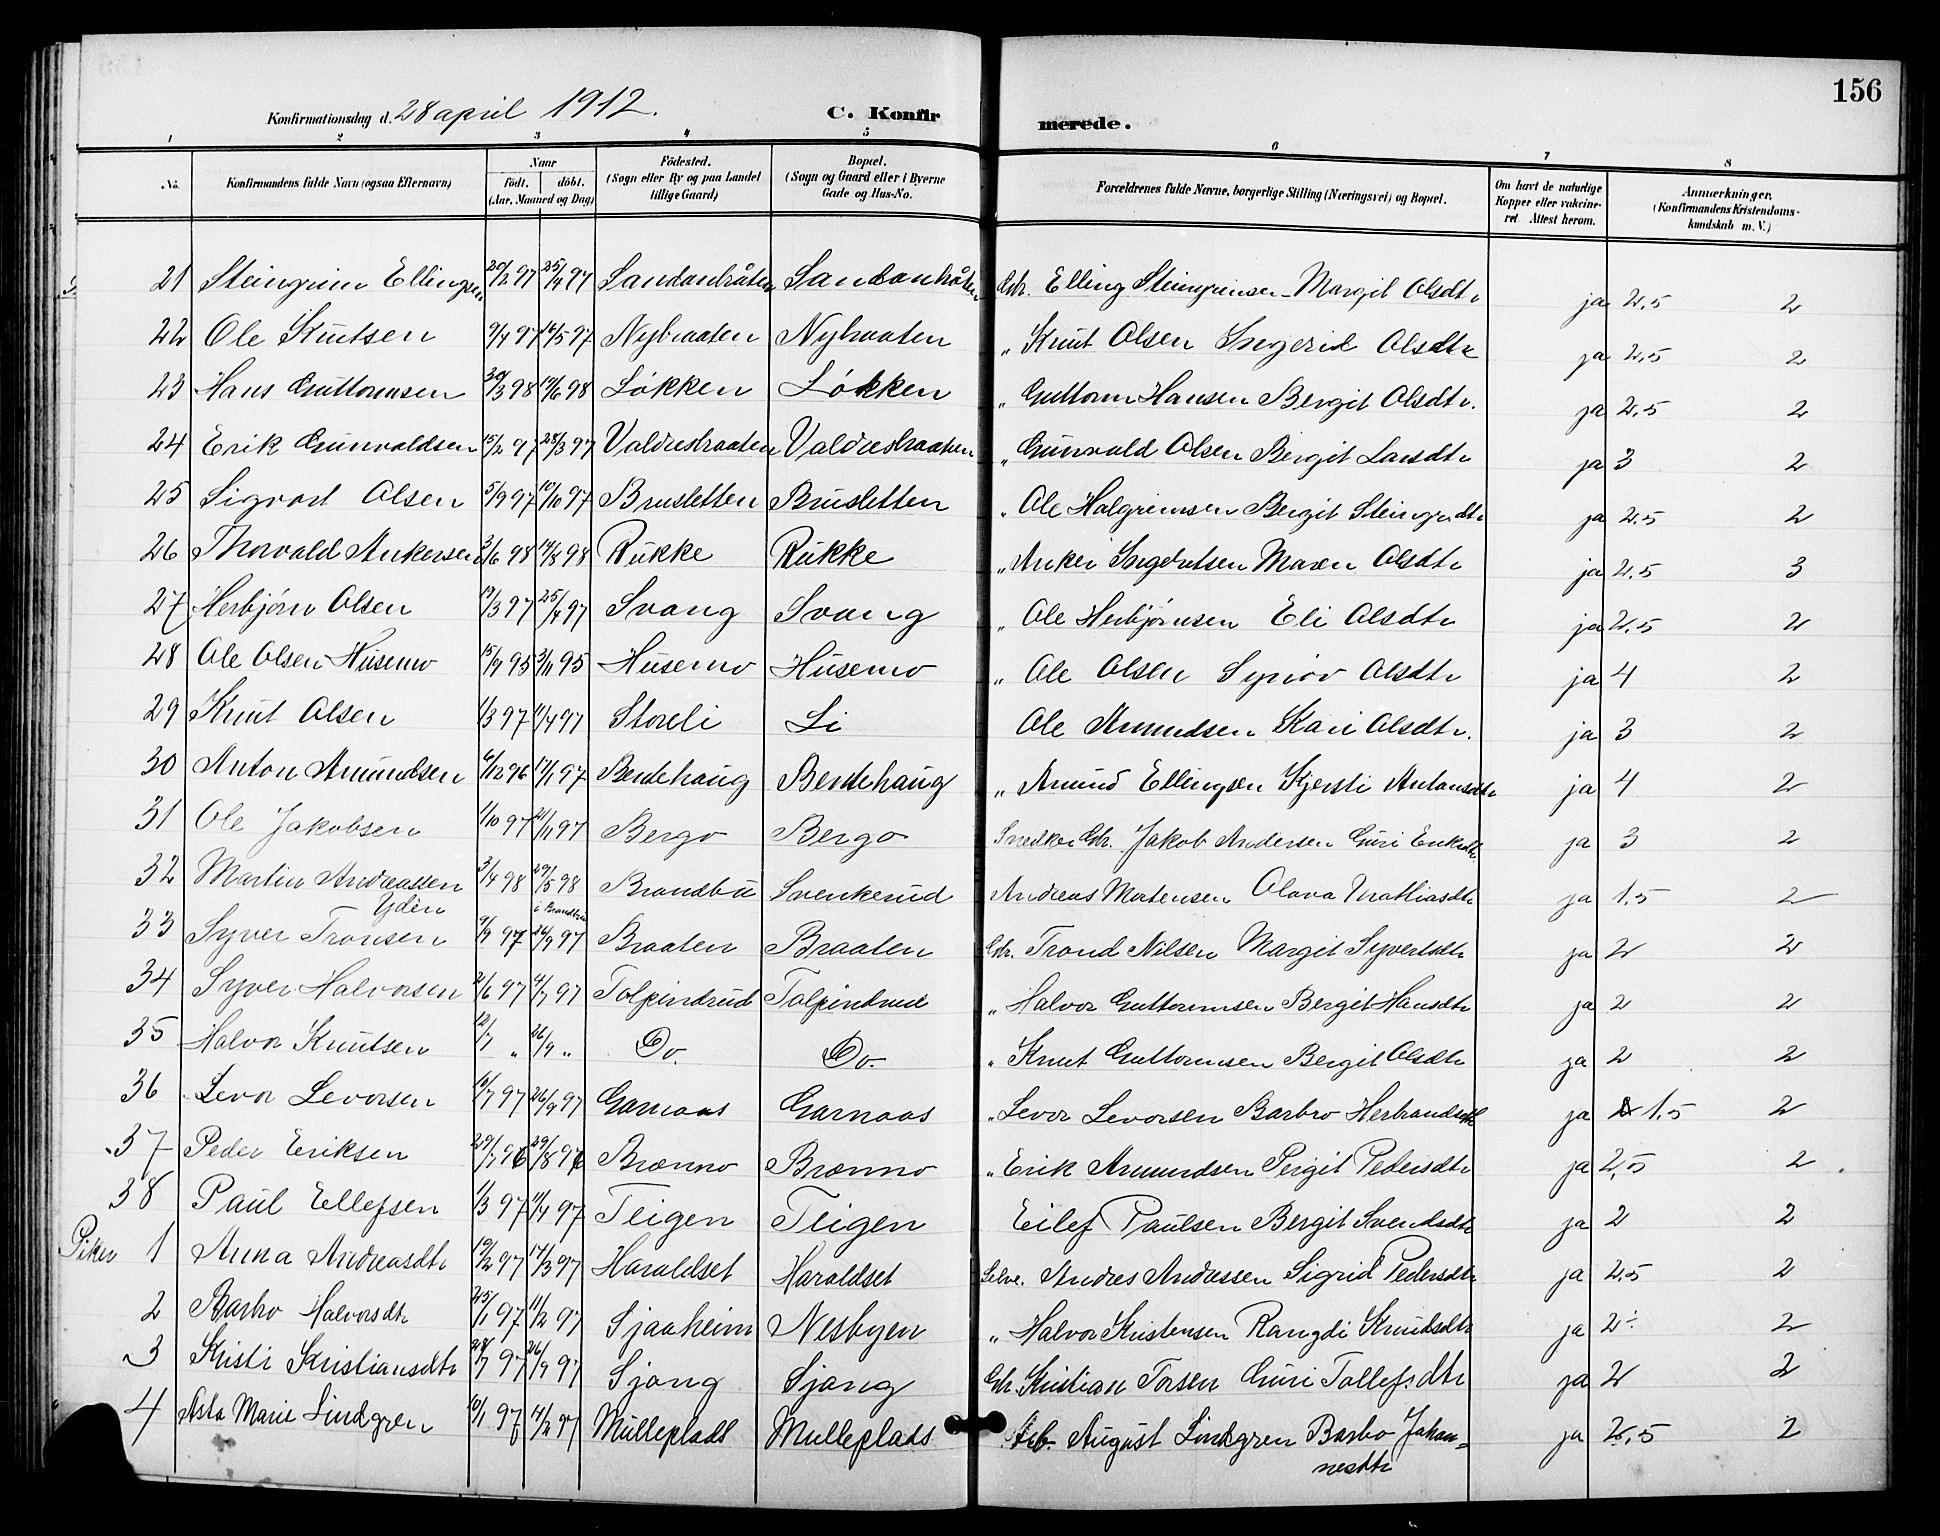 156
Konfirmationsdag d. 28 april 1912. C. Konfirmerede.
1 2 3 4 5 6 7 8
No. Konfirmandens fulde Navn (ogsaa Efternavn) Naar født. døbt. (Aar, Maaned og Dag) Fødested. (Sogn eller By og paa Landet tillige Gaard) Bopæl. (Sogn og Gaard eller i Byerne Gade og Hus-No. Forældrenes fulde Navne, borgerlige Stilling (Næringsvei) og Bopæl. Om havt de naturlige Kopper eller vakcineret. Attest herom. Anmærkninger. (Konfirmandens Kristendomskundskab m. V.)
21 Steingrim Ellingsen 20/2 97 25/4 97 Sandanbråten Sandanbråten Gbr. Elling Steingrimsen - Margit Olsdtr ja 2,5 2
22 Ole Knutsen 9/4 97 16/5 97 Nybraaten Nybraaten " Knut Olsen Ingerid Olsdtr ja 2,5 2
23 Hans Guttormsen 30/3 98 19/6 98 Løkken Løkken " Guttorm Hansen Bergit Olsdtr. ja 2,5 2
24 Erik Gunvaldsen 15/2 97 28/3 97 Valdresbraaten Valdresbraaten " Gunvald Olsen Bergit Larsdtr ja 3 2
25 Sigvart Olsen 5/9 97 10/10 97 Brusletten Brusletten " Ole Halgrimsen Bergit Steingrdtr ja 2,5 2
26 Thorvald Ankersen 3/6 98 14/8 98 Rukke Rukke " Anker Ingebretsen Maren Olsdtr ja 2,5 3
27 Herbjørn Olsen 19/3 97 25/4 97 Svang Svang " Ole Herbjørnsen Eli Olsdtr ja 2,5 2
28 Ole Olsen Husemo 15/9 95 3/11 95 Husemo Husemo " Ole Olsen Synøv Olsdtr ja 4 2
29 Knut Olsen 1/3 97 11/4 97 Storeli Li Ole Amundsen Kari Olsdtr. ja 3 2
30 Anton Amundsen 6/12 96 17/1 97 Bentehaug Bentehaug " Amund Ellingsen Kjersti Antonsdtr ja 4 2
31 Ole Jakobsen 1/10 97 21/11 97 Bergo Bergo Snedker Gbr. Jakob Andersen Guri Eriksdtr. ja 3 2
32 Martin Andreassen Yden 3/4 98 29/5 98 i Brandbu Brandbu Svenkerud Andreas Mortensen Olava Mathiasdtr ja 1,5 2
33 Syver Tronsen 9/9 97 26/9 97 Braaten Braaten Gbr. Trond Nilsen Margit Syvertsdtr ja 2 2
34 Syver Halvorsen 21/6 97 4/7 97 Tolpinrud Tolpinrud " Halvor Guttormsen Bergit Hansdtr ja 2 2
35 Halvor Knutsen 12/7 " 26/9 " Do. Do. " Knut Guttormsen Bergit Olsdtr ja 2 2
36 Levor Levorsen 10/7 97 26/9 97 Garnaas Garnaas " Levor Levorsen Barbro Herbrandsdtr ja 1,5 2
37 Peder Eriksen 29/7 96 29/8 96 Brenno Brenno " Erik Amundsen Bergit Pedersdtr ja 2,5 2
38 Paul Ellefsen 1/3 97 11/4 97 Teigen Teigen Eilef Paulsen Bergit Svendsdtr ja 2 2
Piker 1 Anna Andreasdtr 19/2 97 14/3 97 Haraldset Haraldset Selve. Andres Andressen Sigrid Pedersdtr ja 2,5 2
2 Barbro Halvorsdtr 25/1 97 11/2 97 Sjaaheim Nesbyen " Halvor Kristensen Rangdi Knudsdtr ja 2÷ 2
3 Kristi Kristiansdtr 28/7 97 26/9 97 Sjong Sjong Gbr. Kristian Torsen Guri Tollefsdtr ja 2 2
4 Asta Marie Lindgren 10/1 97 14/2 97 Mulleplads Mulleplads Arb. August Lindgren Barbro Johannesdtr ja 2,5 2